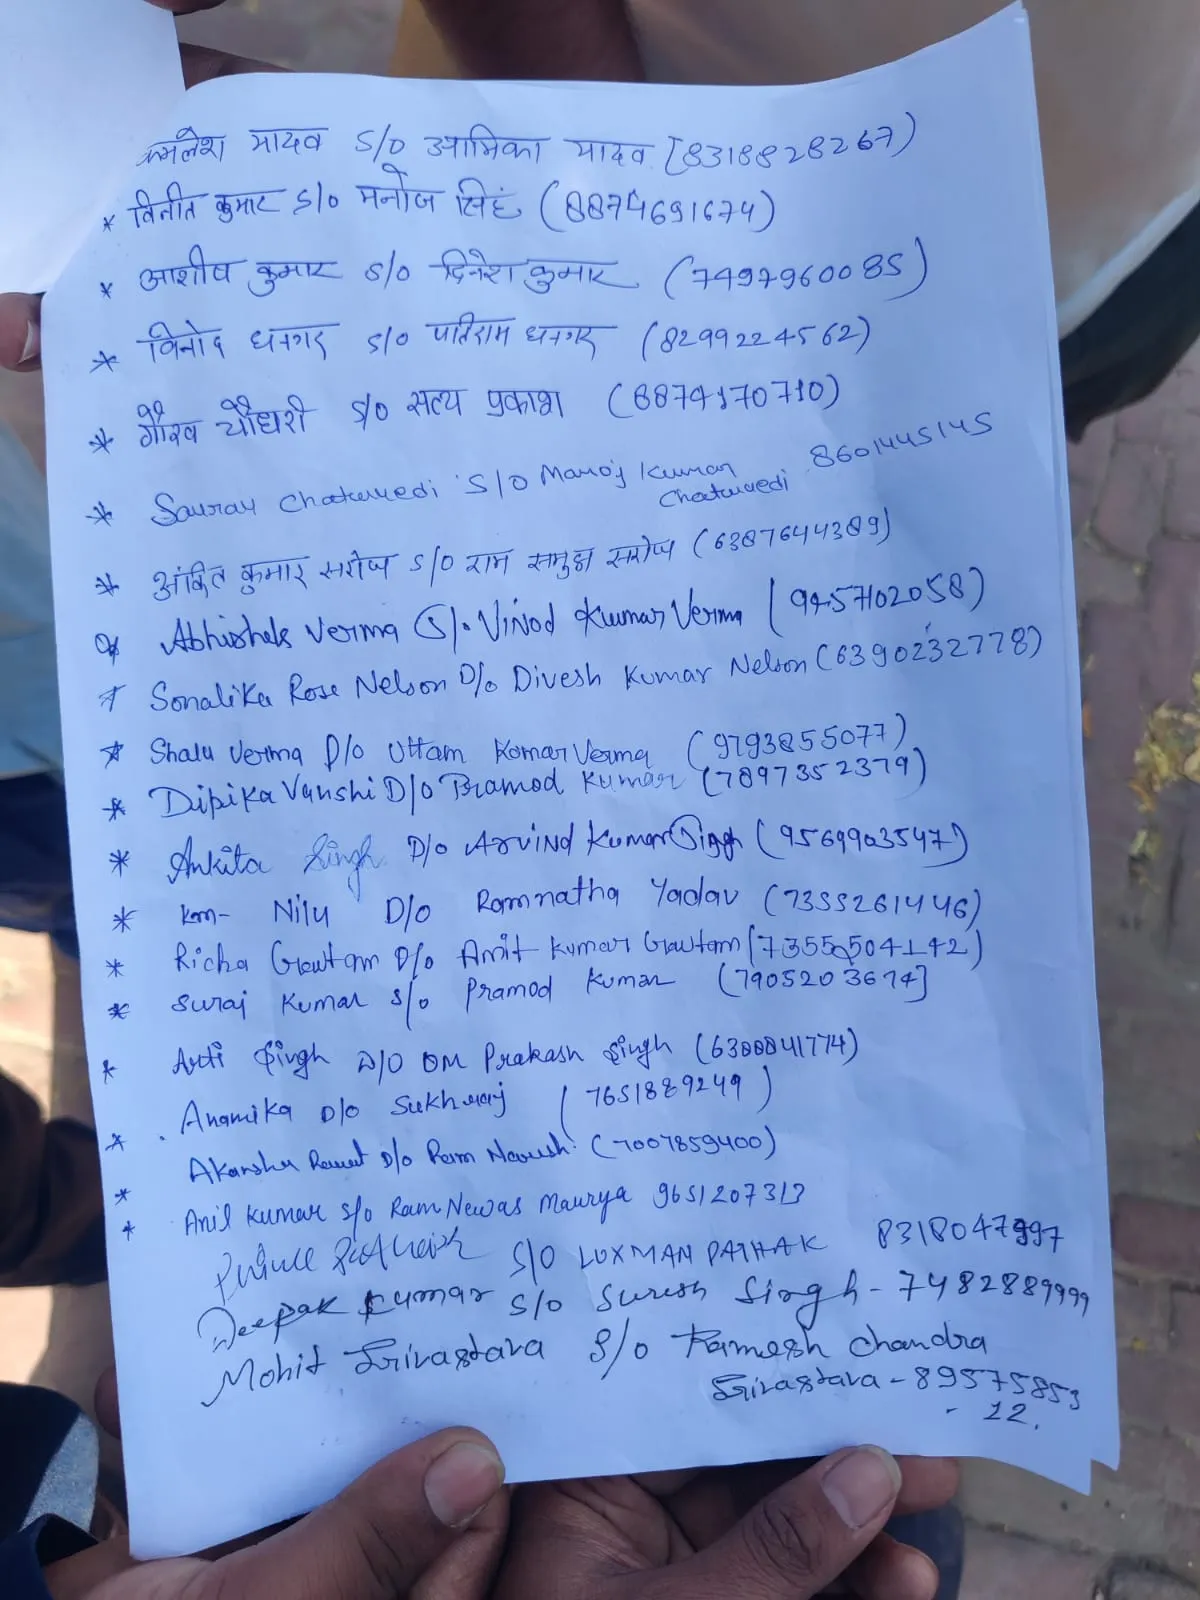 कमलेश यादव S/O आमिका यादव (8318828267)
* विनीत कुमार S/O मनोज सिंह (8874691674)
* आशीष कुमार S/O दिनेश कुमार (7497960085)
* विनोद धनगर S/O पातिराम धनगर (8299224562)
* गौरव चौधरी S/O सत्य प्रकाश (8874170710)
* Saurav Chaturvedi S/O Manoj Kumar Chaturvedi 8601445145
* अंकित कुमार सरोज S/O राम समुझ सरोज (6387644389)
* Abhishek Verma S/o Vinod Kumar Verma (9457102058)
* Sonalika Rose Nelson D/o Divesh Kumar Nelson (6390232778)
* Shalu Verma D/o Uttam Komar Verma (9793855077)
* Dipika Vanshi D/o Pramod Kumar (7897352379)
* Ankita Singh D/o Arvind Kumar Singh (9569903547)
* Km- Nilu D/o Ramnatha Yadav (7355261446)
* Richa Gautam D/o Amit Kumar Gautam (7355504142)
* Suraj Kumar S/o Pramod Kumar (7905203674]
* Arti Singh D/O OM Prakash Singh (6388841774)
* Anamika D/o Sukhraj (7651889249)
* Akansha Rawat D/o Ram Naresh (7007859400)
* Anil Kumar S/o Ram Newas Maurya 9651207313
S/O LUXMAN PATHAK 8318047997
Deepak Kumar S/o Suresh Singh - 7482889999
Mohit Srivastava S/o Ramesh Chandra
Srivastava - 89575853
- 12.